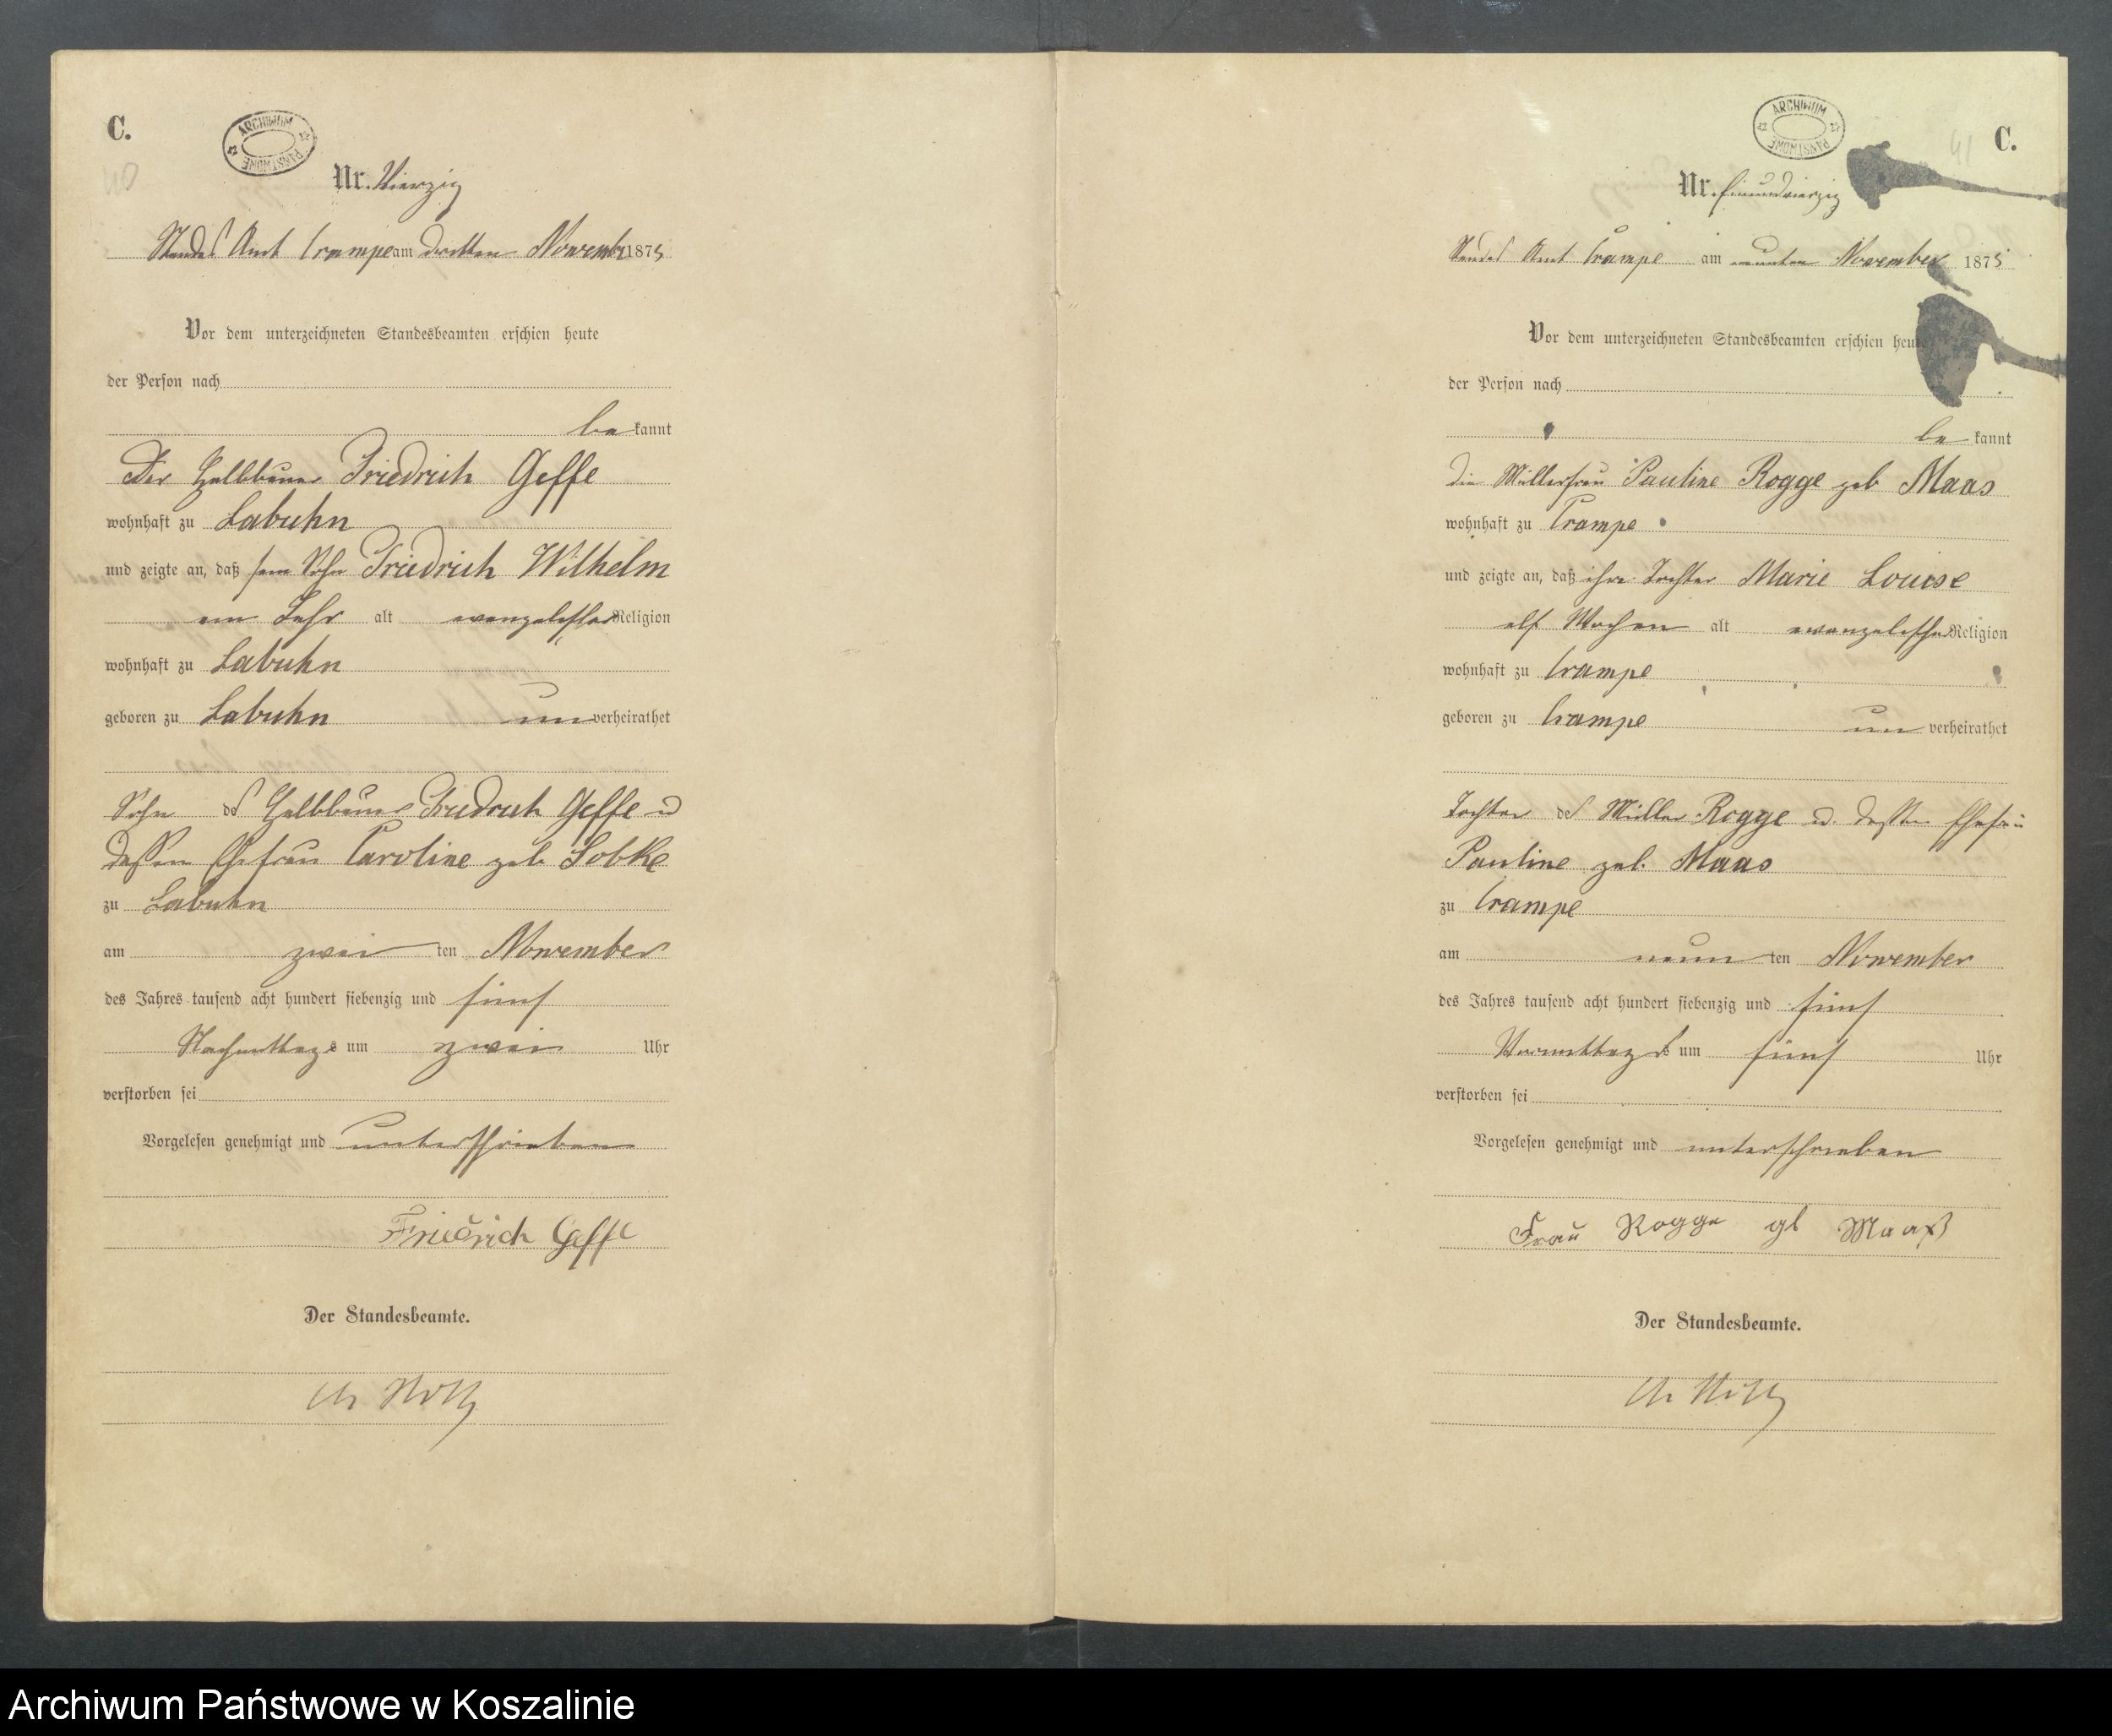 C.
ARCHIWUM PAŃSTWOWE
40
Nr. Vierzig
Standes Amt Crampe am dritten November 1875
Vor dem unterzeichneten Standesbeamten erschien heute
der Person nach
be kannt
Der Halbbauer Friedrich Geffe
wohnhaft zu Labuhn
und zeigte an, daß sein Sohn Friedrich Wilhelm
ein Jahr alt evangelischer Religion
wohnhaft zu Labuhn
geboren zu Labuhn un verheirathet
Sohn des Halbbauer Friedrich Geffe u
dessen Ehefrau Caroline geb Sobke
zu Labuhn
am zwei ten November
des Jahres tausend acht hundert siebenzig und fünf
Nachmittags um zwei Uhr
verstorben sei
Vorgelesen genehmigt und unterschrieben
Friedrich Geffe
Der Standesbeamte.
C.
ARCHIWUM PAŃSTWOWE
41
Nr. Einundvierzig
Standes Amt Crampe am neunten November 1875
Vor dem unterzeichneten Standesbeamten erschien heu
der Person nach
be kannt
die Müllerfrau Pauline Rogge geb Maas
wohnhaft zu Crampe
und zeigte an, daß ihre Tochter Marie Louise
elf Wochen alt evangelischer Religion
wohnhaft zu Crampe
geboren zu Crampe un verheirathet
Tochter des Müller Rogge u. dessen Ehefrau
Pauline geb. Maas
zu Crampe
am neun ten November
des Jahres tausend acht hundert siebenzig und fünf
Vormittags um fünf Uhr
verstorben sei
Vorgelesen genehmigt und unterschrieben
Frau Rogge gb Maaß
Der Standesbeamte.
Archiwum Państwowe w Koszalinie